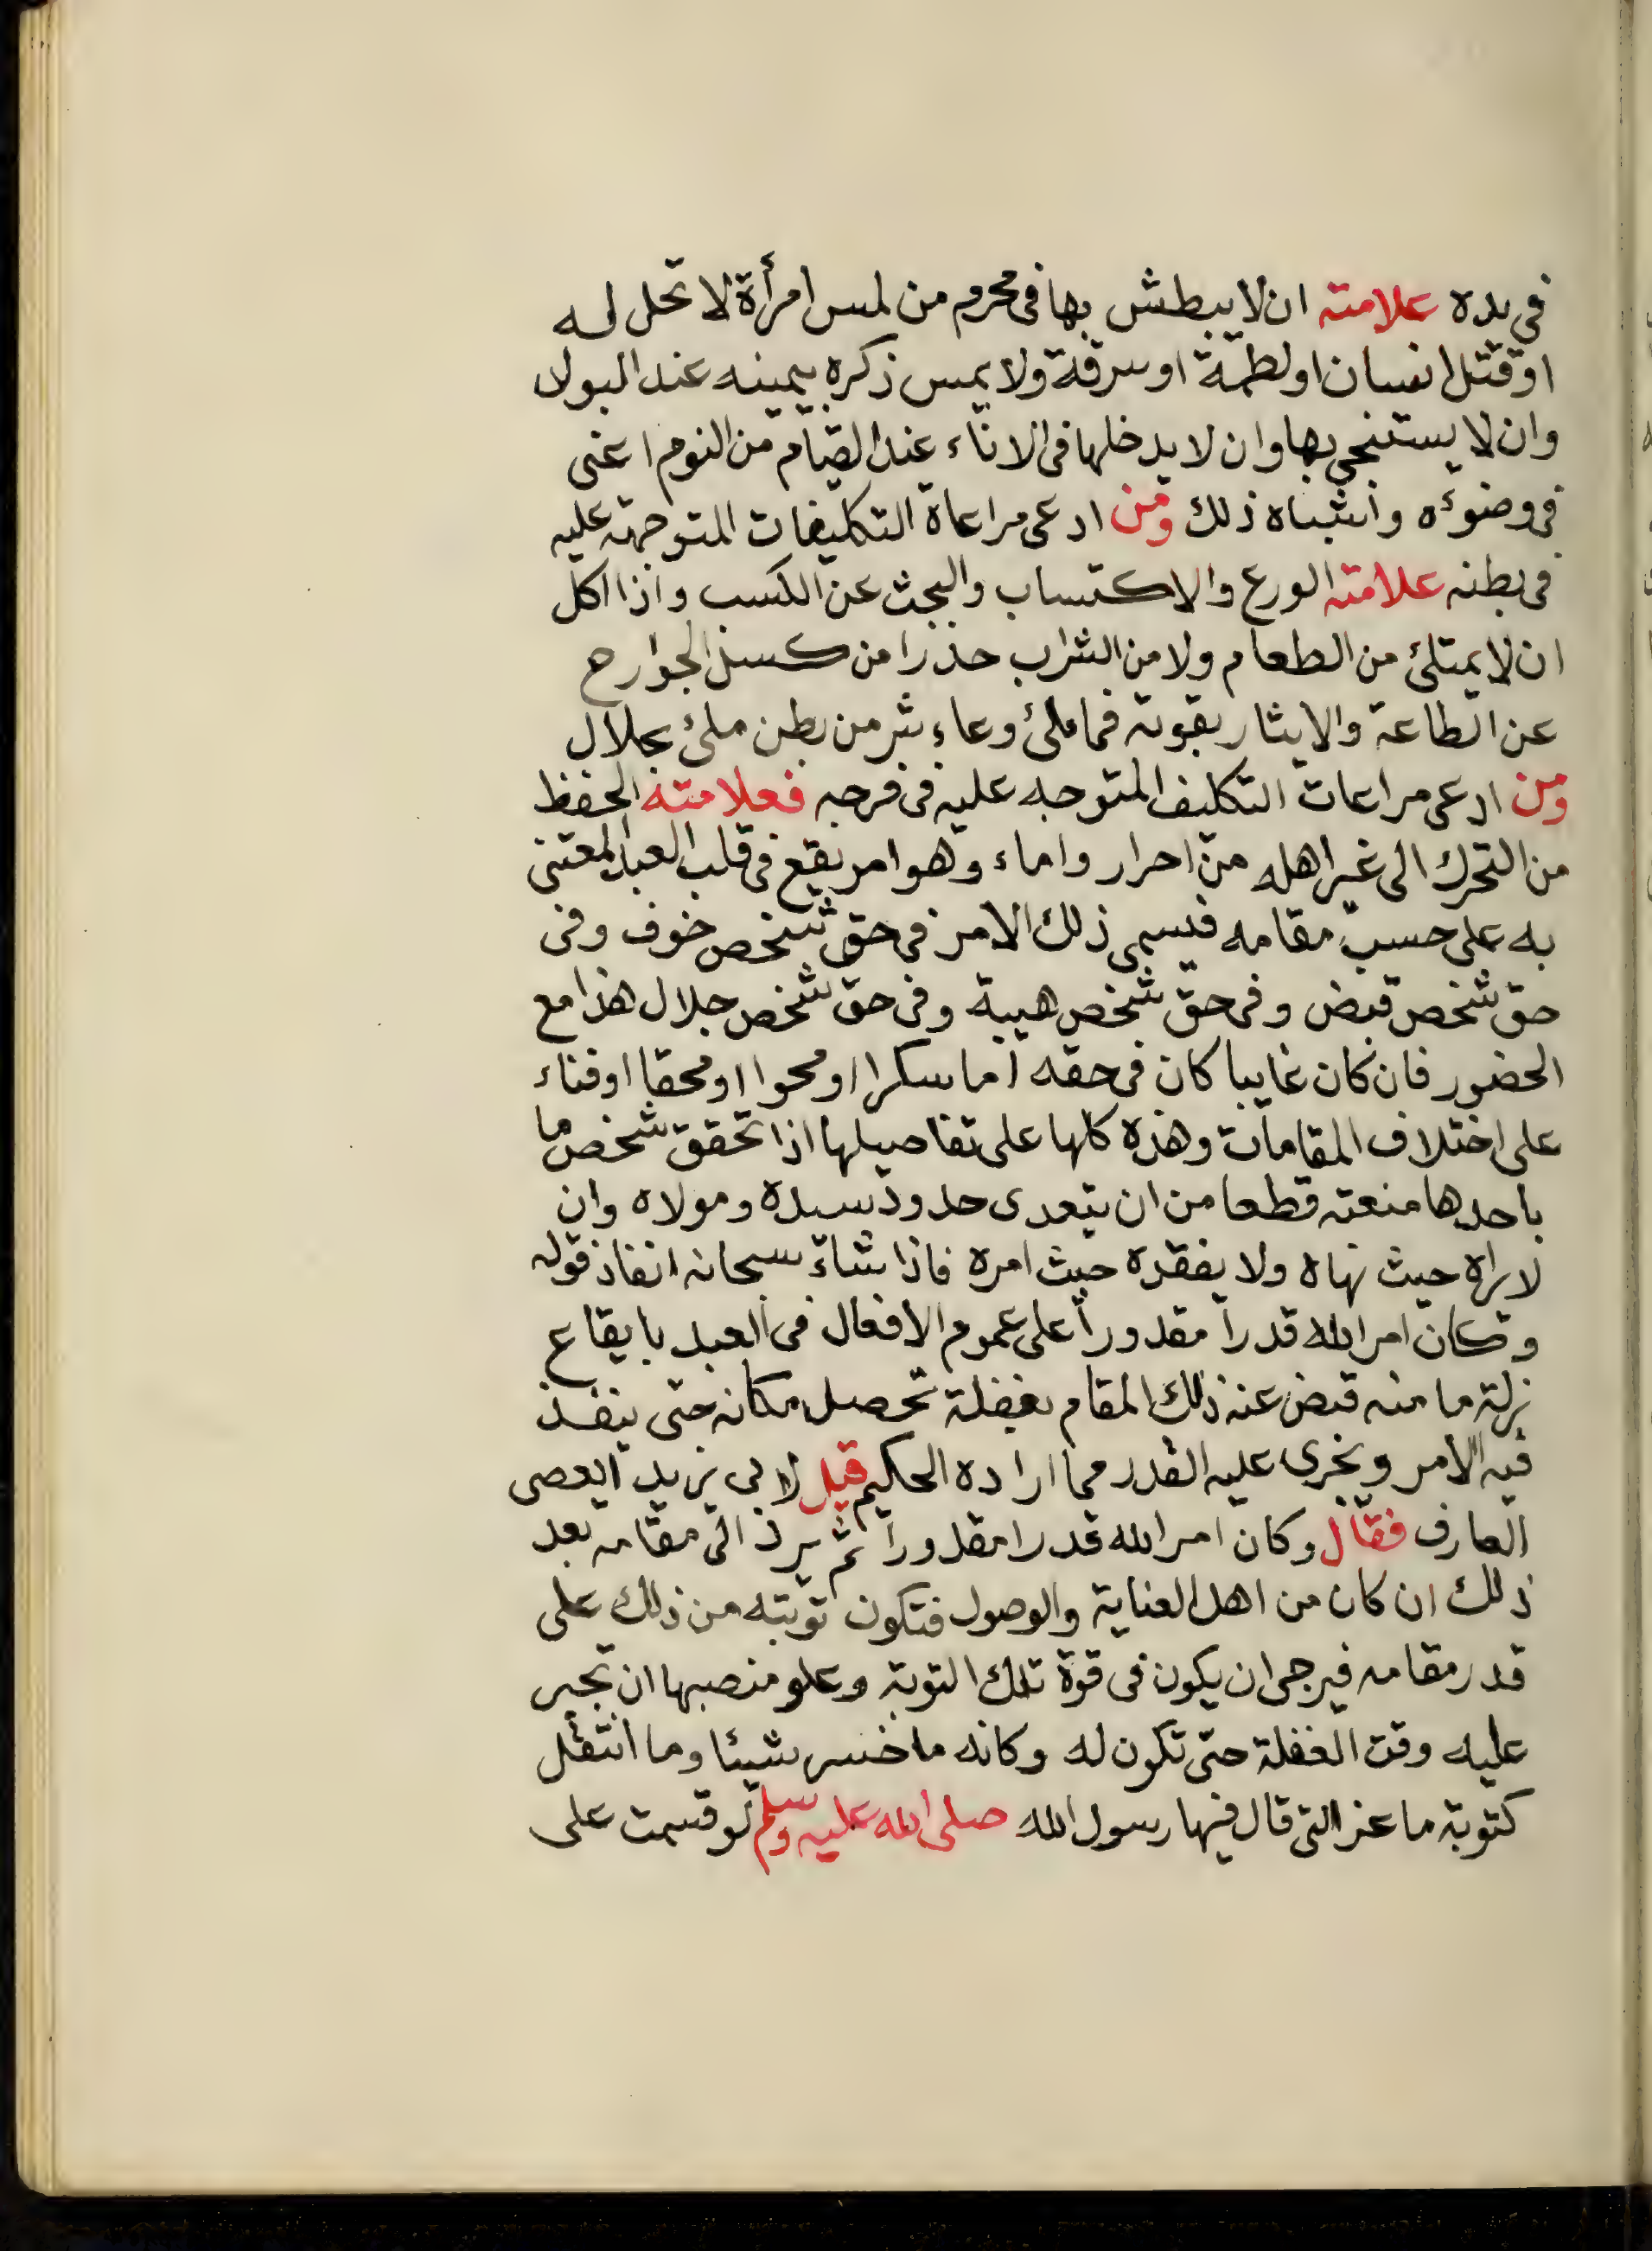 في يده علامته ان لا يبطش بها في محرم من لمس امرأة لا تحل له
او قتل انسان او لطمة او سرقة ولا يمس ذكره بيمينه عند البول
وان لا يستنجي بها وان لا يدخلها في الاناء عند القيام من النوم اعنى
في وضوئه واشباه ذلك ومن ادعى مراعاة التكليفات المتوجهة عليه
في بطنه علامته الورع والاكتساب والبحث عن الكسب واذا اكل
ان لا يمتلئ من الطعام ولا من الشراب حذرا من كسل الجوارح
عن الطاعة والايثار بقوته فما ملئ وعاء شر من بطن ملئ بحلال
ومن ادعى مراعات التكليف المتوجه عليه في فرجه فعلامته الحفظ
من التحرك الى غير اهله من احرار واماء وهو امر يقع في قلب العبد المعتنى
به على حسب مقامه فيسمى ذلك الامر في حق شخص خوف وفى
حق شخص قبض وفى حق شخص هيبة وفى حق شخص جلال هذا مع
الحضور فان كان غايبا كان في حقه اما سكرا او محوا او محقا او فناء
على اختلاف المقامات وهذه كلها على تفاصيلها اذا تحقق شخص ما
باحدها منعته قطعا من ان يتعدى حدود سيده ومولاه وان
لا يراه حيث نهاه ولا يفقده حيث امره فاذا شاء سبحانه انفاذ قوله
وكان امر الله قدرا مقدورا على عموم الافعال في العبد بايقاع
زلة ما منه قبض عنه ذلك المقام بغفلة تحصل مكانه حتى ينفذ
فيه الامر ويجرى عليه القدر مما اراده الحكيم قيل لابى يزيد ايعصى
العارف فقال وكان امر الله قدرا مقدورا ثم يرد الى مقامه بعد
ذلك ان كان من اهل العناية والوصول فتكون توبته من ذلك على
قدر مقامه فيرجى ان يكون في قوة تلك التوبة وعلو منصبها ان تجبر
عليه وقت الغفلة حتى تكون له وكانه ما خسر شيئا وما انتقل
كتوبة ماعز التي قال فيها رسول الله صلى الله عليه وسلم لو قسمت على